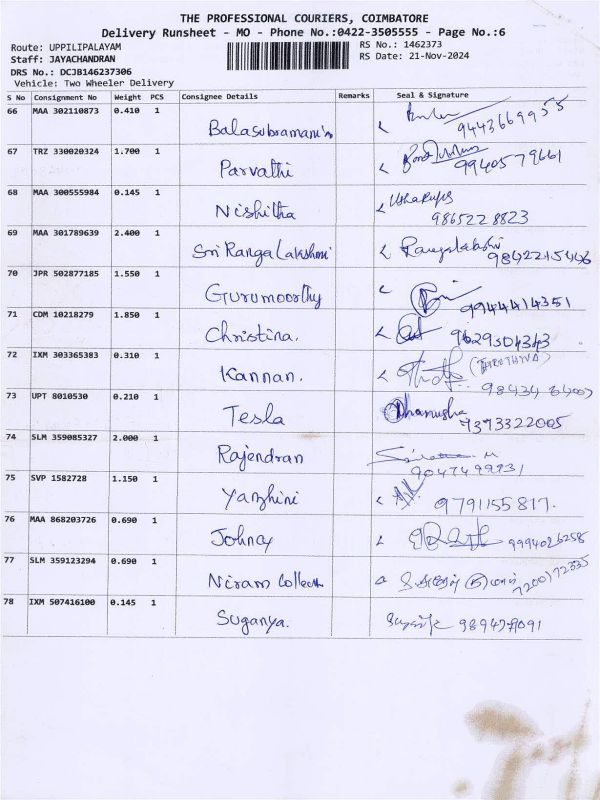 THE PROFESSIONAL COURIERS, COIMBATORE
Delivery Runsheet - MO - Phone No.:0422-3505555 - Page No.:6
Route: UPPILIPALAYAM
RS No.: 1462373
Staff: JAYACHANDRAN
RS Date: 21-Nov-2024
DRS No.: DCJB146237306
Vehicle: Two Wheeler Delivery
S No Consignment No Weight PCS Consignee Details Remarks Seal & Signature
66 MAA 302110873 0.410 1
Balasubramani 9443669955
67 TRZ 330020324 1.700 1
Parvathi 9940579661
68 MAA 300555984 0.145 1
Nishitha
9865228823
69 MAA 301789639 2.400 1
Sri Ranga Lakshmi Rangalakshmi
70 JPR 502877185 1.550 1
Gurumoorthy 9944414351
71 CDM 10218279 1.850 1
Christina. 9629304343
72 IXM 303365383 0.310 1
Kannan.
73 UPT 8010530 0.210 1
Tesla Dhanusha
7373322005
74 SLM 359085327 2.000 1
Rajendran
75 SVP 1582728 1.150 1
Yazhini 9791155817.
76 MAA 868203726 0.690 1
Johncy 9994026258
77 SLM 359123294 0.690 1
Niram 7200172335
78 IXM 507416100 0.145 1
Suganya.